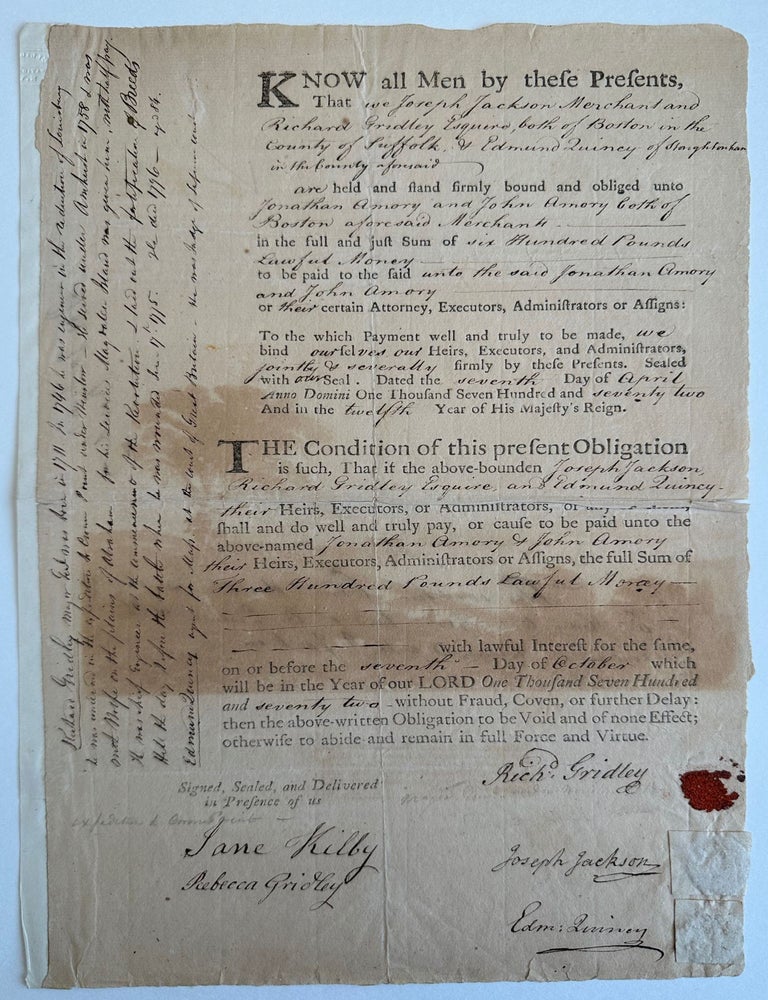 KNOW all Men by theſe Preſents,
That we Joſeph Jackson Merchant and
Richard Gridley Esquire, both of Boston in the
County of Suffolk, & Edmund Quincy of Stoughtonham
in the County aforesaid
are held and ſtand firmly bound and obliged unto
Jonathan Amory and John Amory both of
Boston aforesaid Merchants
in the full and juſt Sum of six Hundred Pounds
Lawful Money
to be paid to the ſaid unto the said Jonathan Amory
and John Amory
or their certain Attorney, Executors, Adminiſtrators or Aſſigns:
To the which Payment well and truly to be made, we
bind ourselves our Heirs, Executors, and Adminiſtrators,
jointly & severally firmly by theſe Preſents. Sealed
with our Seal. Dated the seventh Day of April
Anno Domini One Thouſand Seven Hundred and seventy two
And in the twelfth Year of His Majeſty's Reign.
THE Condition of this preſent Obligation
is ſuch, That if the above-bounden Joseph Jackson,
Richard Gridley Esquire, and Edmund Quincy
their Heirs, Executors, or Adminiſtrators, or any
ſhall and do well and truly pay, or cauſe to be paid unto the
above-named Jonathan Amory & John Amory
their Heirs, Executors, Adminiſtrators or Aſſigns, the full Sum of
Three Hundred Pounds Lawful Money
with lawful Intereſt for the ſame,
on or before the seventh Day of October which
will be in the Year of our LORD One Thouſand Seven Hundred
and seventy two without Fraud, Coven, or further Delay:
then the above-written Obligation to be Void and of none Effect;
otherwiſe to abide and remain in full Force and Virtue.
Signed, Sealed, and Delivered
in Preſence of us
Jane Kilby
Rebecca Gridley
Richd. Gridley
Joseph Jackson
Edm: Quincy
expedition to
Richard Gridley major Genl was born in 1711 In 1746 he was engineer in the reduction of Louisburg
he was under in the expedition to Crown Point under Winslow - He served under Amherst in 1758 & was
with Wolfe on the plains of Abraham for his services Magdalen Island was given him, with half pay.
He was chief Engineer at the commencement of the Revolution & laid out the fortification of Breeds
Hill the day before the battle when he was wounded June 17th 1775. He died 1796 - aged 84.
Edmund Quincy agent for Mass. at the court of Great Britain - He was Judge of Supreme court